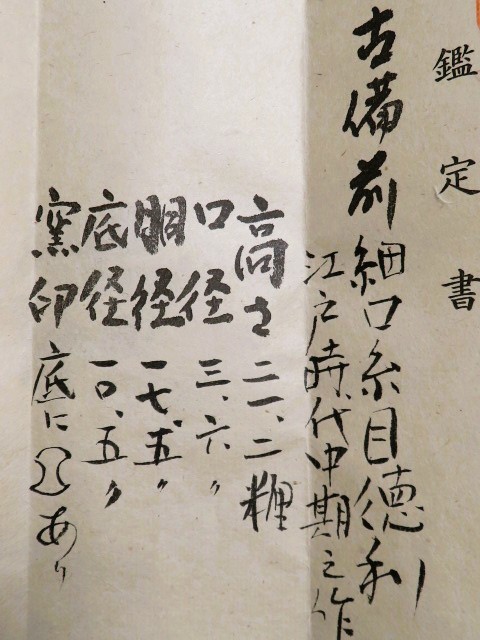 鑑定書
古備前細口糸目徳利
江戸時代中期之作
高さ二一、二糎
口径三、六〃
胴径一七、五〃
底径一〇、五〃
窯印底にあり